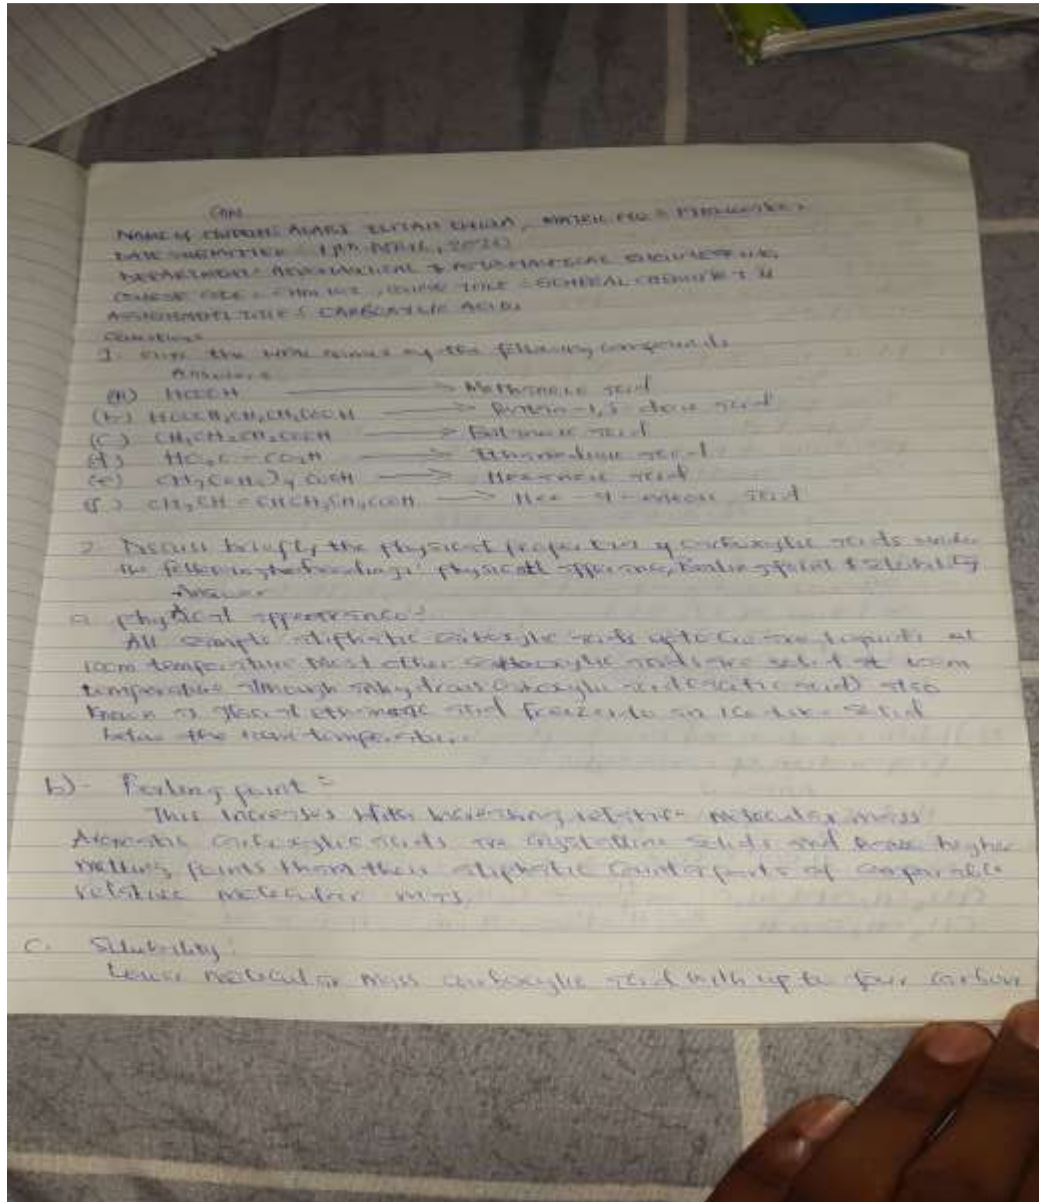 NAME OF STUDENT:
DATE SUBMITTED: APRIL, 2020
DEPARTMENT: AERONAUTICAL & ASTRONAUTICAL ENGINEERING
COURSE CODE: CHM, COURSE TITLE: GENERAL CHEMISTRY II
ASSIGNMENT TITLE: CARBOXYLIC ACIDS
Questions
1. Give the names of the following compounds
Answers
(a) HCOOH → Methanoic acid
(b) HOOCCH2CH2CH2COOH → dioic acid
(c) CH3CH2CH2COOH → Butanoic acid
(d) HO2C-CO2H → Ethanedioic acid
(e) CH3(CH2)4COOH → Hexanoic acid
(f) CH3CH=CHCH2CH2COOH → Hex-4-enoic acid
2. Discuss briefly the physical properties of carboxylic acids under
the following: physical appearance, boiling point & solubility
Answer
a. physical appearance:
All simple aliphatic carboxylic acids up to are liquids at
room temperature. Most other carboxylic acids are solid at room
temperature although anhydrous carboxylic acid also
known as glacial ethanoic acid freezes to an ice-like solid
below the room temperature.
b). Boiling point:
This increases with increasing relative molecular mass.
Aromatic carboxylic acids are crystalline solids and have higher
melting points than their aliphatic counterparts of comparable
relative molecular mass.
c. Solubility:
Lower molecular mass carboxylic acid with up to four carbon